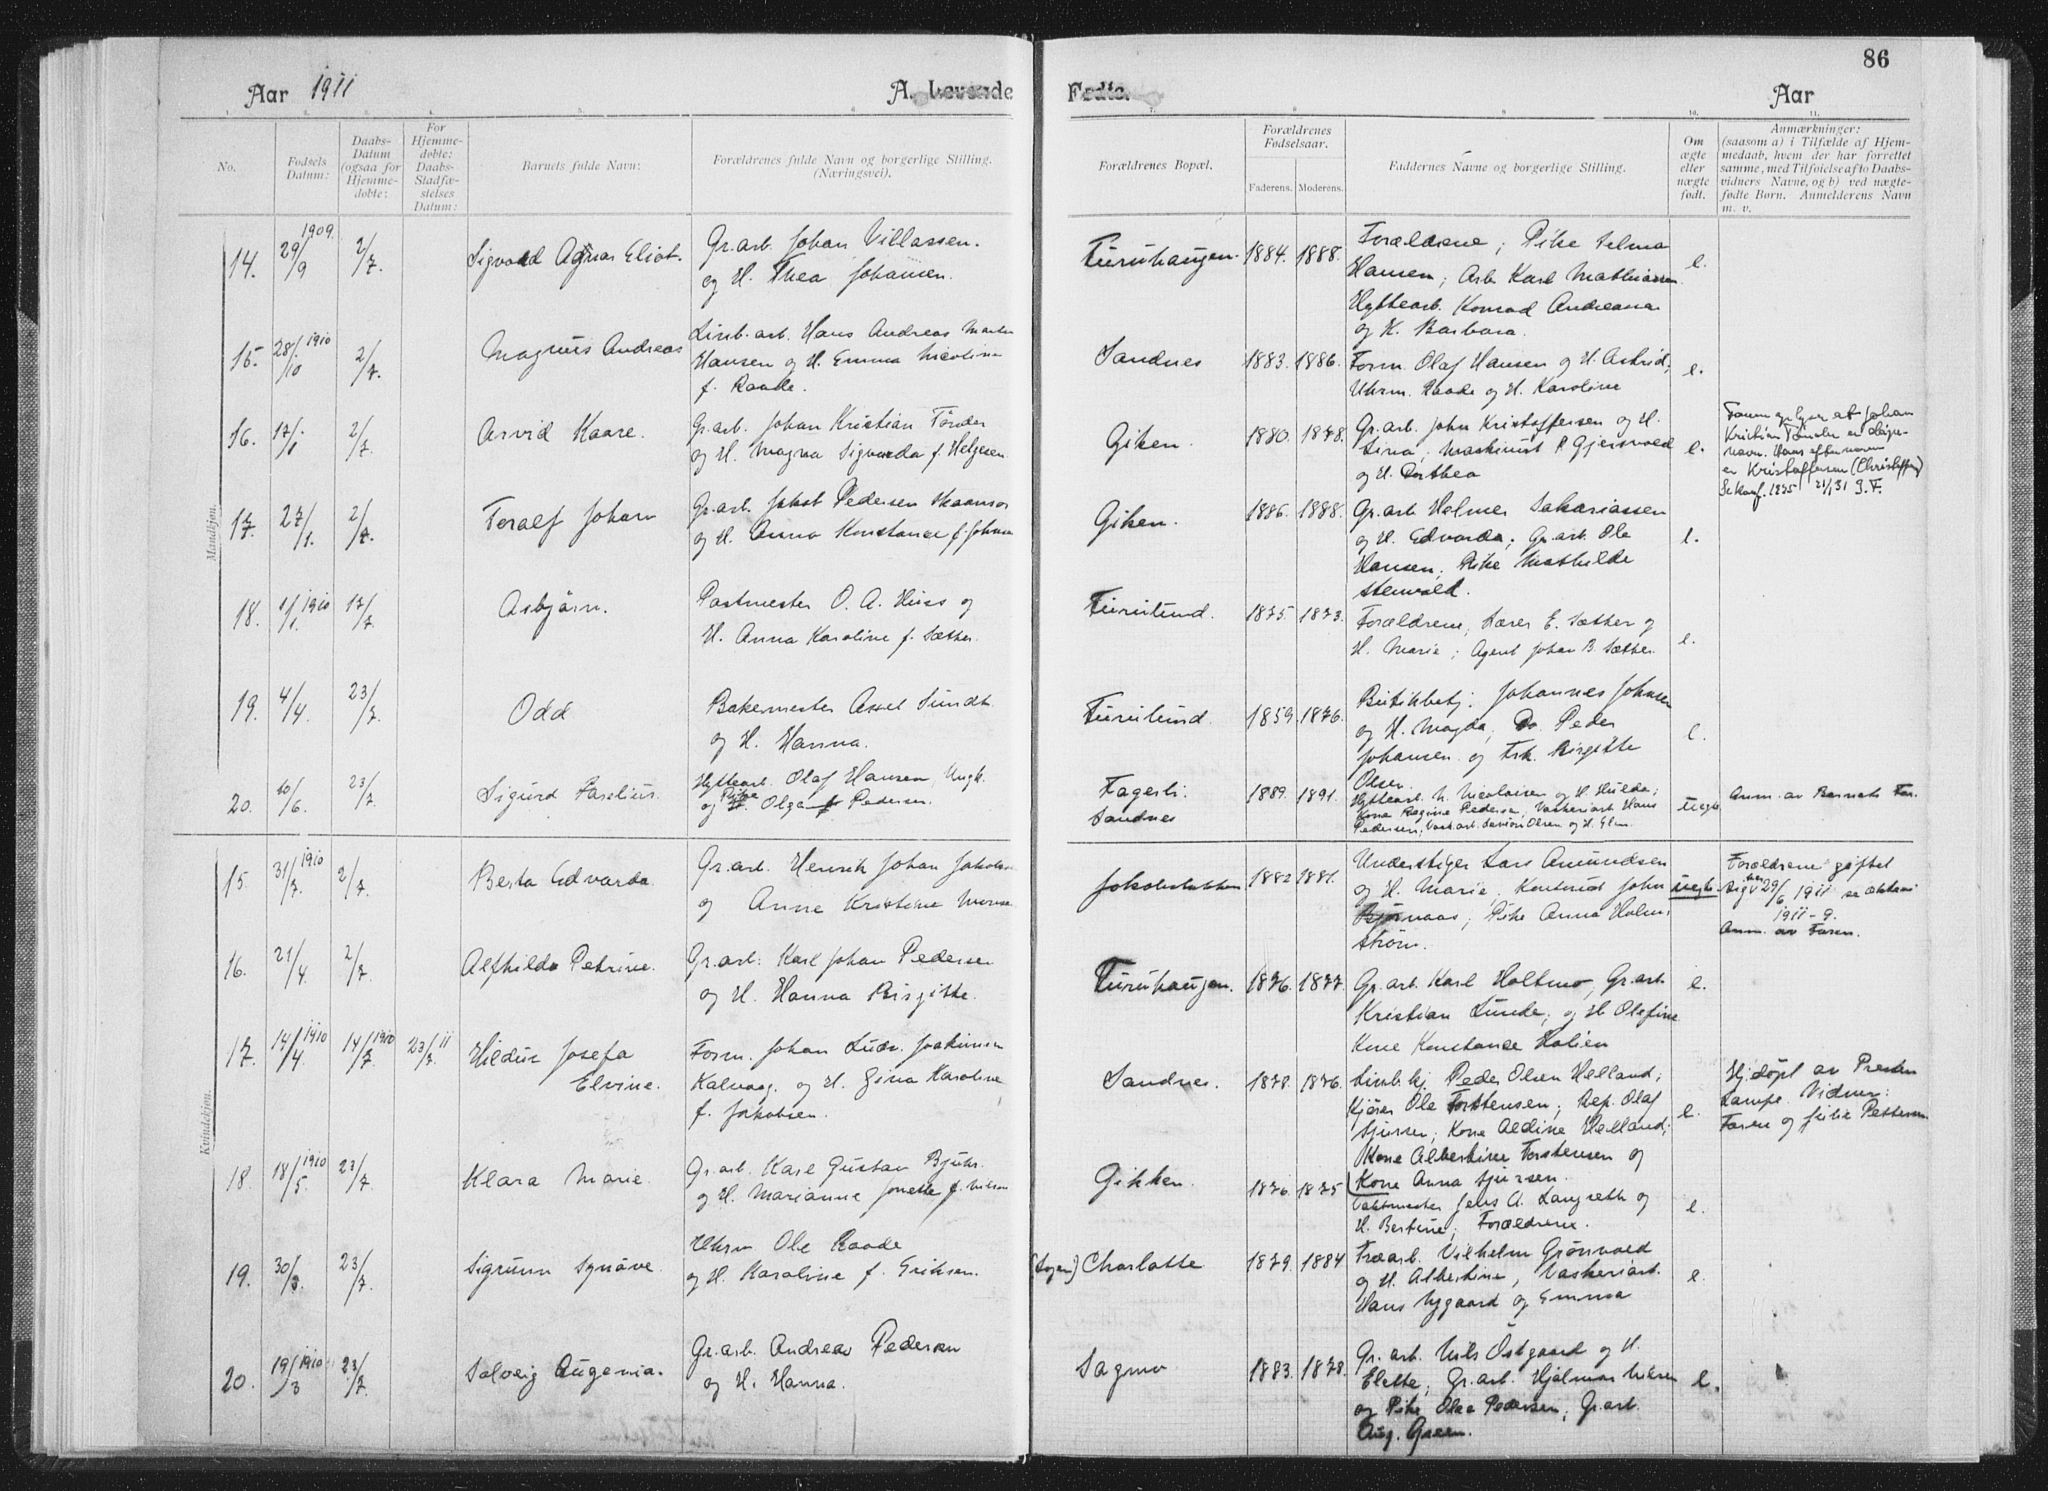 86
Aar 1911
A. Levende Fødte.
Aar
1. 2. 3. 4. 5. 6. 7. 8. 9. 10. 11.
No.
Fødsels Datum:
Daabs-Datum (ogsaa for Hjemme-døbte:
For Hjemme-døbte: Daabs-Stadfæ-stelses Datum:
Barnets fulde Navn:
Forældrenes fulde Navn og borgerlige Stilling. (Næringsvei).
Forældrenes Bopæl.
Forældrenes Fødselsaar.
Faderens. Moderens.
Faddernes Navne og borgerlige Stilling.
Om ægte eller uægte født.
Anmærkninger: (saasom a) i Tilfælde af Hjem-medaab, hvem der har forrettet samme, med Tilføielse af to Daabs-vidners Navne, og b) ved uægte-fødte Børn. Anmelderens Navn m. v.
Mandkjøn.
14. 29/9 1909 2/7. Sigvald Agnar Eliot.
Gr.arb. Johan Villassen.
og H. Thea Johansen.
Furuhaugen. 1884. 1888.
Forældrene; Pike Selma
Hansen; Arb. Karl Mathiassen
Hyttearb. Konrad Andreasen
og K. Barbara.
e.
15. 28/10 1910 2/7. Magnus Andreas
Linb.arb. Hans Andreas Martin
Hansen og H. Emma Nicoline
f. Raade.
Sandnes 1883. 1886.
Form. Olaf Hansen og H. Astrid;
Uhrm. Raade og H. Karoline
e.
16. 17/1 2/7. Arvid Kaare.
Gr.arb. Johan Kristian Tönder
og H. Magna Sigvarda f. Helgesen
Giken. 1880. 1878.
Gr.arb. John Kristoffersen og H.
Lina; Maskinist P. Gjersvold
og H. Dorthea
e.
Faren oplyser at Johan
Kristian Tönder er døpe-
navn. Hans efternavn
er Kristoffersen (Christoffers)
21/1 31 S.F.
17. 27/1. 2/7. Toralf Johan
Gr.arb. Jakob Pedersen
og H. Anna Konstance f. Johnsen
Giken. 1886. 1888.
Gr.arb Helmer Sakariassen
og H. Edvarda; Gr.arb. Ole
Hansen; Pike Mathilde
Stenvold.
e.
18. 1/1. 1910 17/7. Asbjörn.
Postmester O. A. Huss og
H. Anna Karoline f. Sæther.
Furulund. 1875. 1873.
Forældrene; Lærer E. Sæther og
H. Marie; Agent Johan B. Sæther
e.
19. 4/4. 23/7. Odd
Bakermester Axel Sundt
og H. Hanna.
Furulund. 1859. 1876.
Butikbetj. Johannes Johnsen
og H. Magda; Do. Peder
Johansen og Frk. Birgitte
Olsen.
e.
20. 10/6. 23/7. Sigurd Parelius.
Hyttearb. Olaf Hansen, Ungk.
og Pike Olga Pedersen.
Fagerli. Sandnes 1889. 1891.
Hyttearb. N. Nicolaisen og H. Hulda;
Kone Regine Pedersen, Vaskeriarb. Hans
Pedersen; Vask.arb. Olsen og H.
uegte
Anm. av Barnets Far.
Kvindekjøn.
15. 31/7. 1910 2/7. Berta Edvarda.
Gr.arb. Henrik Johan Jakobsen
og Anne Kristine
Jakobsbakken 1882 1881.
Understiger Lars Amundsen
og H. Marie; Kontorist John
Björnaas; Pike Anna Holm-
ström.
uegte
Forældrene giftet
her 29/6 1911 se
1911-9.
Anm. av Faren.
16. 21/4 2/7. Alfhilda Petrine.
Gr.arb. Karl Johan Pedersen
og H. Hanna Birgitte.
Furuhaugen. 1876. 1877.
Gr.arb. Karl Holtmo, Gr.arb.
Kristian Lunde; og H. Olefine
Kone Konstance Holien
e.
17. 14/4. 1910 14/7. 1910 23/7. 11 Hildur Josefa
Elvine.
Form. Johan Ludv. Joakimsen
Kalvaag. og H. Gina Karoline
f. Jakobsen.
Sandnes. 1878. 1876.
Linb.bj. Peder Olsen Helland;
Kjörer Ole Torstensen; Rep. Olaf
Sjursen; Kone Aldine Helland;
Kone Albertine Torstensen og
Kone Anna Sjursen.
e.
Hj.döpt av Presten
Lampe. Vidner:
Faren og Julie Pettersen
18. 18/5. 1910 23/7. Klara Marie.
Gr.arb. Karl Gustav
og H. Marianne Jonette f. Nilsen
Gikken. 1876. 1875
Vaktmester Jens A. Langseth og
H. Bertine; Forældrene.
e.
19. 30/3. 23/7. Sigrunn Synöve.
Uhrm Ole Raade
og H. Karoline f. Eriksen.
Charlotte 1879. 1884
Træarb. Vilhelm Grönvold
og H. Albertine, Vaskeriarb.
Hans Nygaard og Emma
e.
20. 19/3 1910 23/7. Solveig Eugenia.
Gr.arb. Andreas Pedersen
og H. Hanna.
Sagmo 1883. 1878.
Gr.arb. Nils Östgaard og H.
Elette; Gr.arb. Hjalmar Nilsen
og Pike Olea Pedersen; Gr.arb.
Aug. Green.
e.